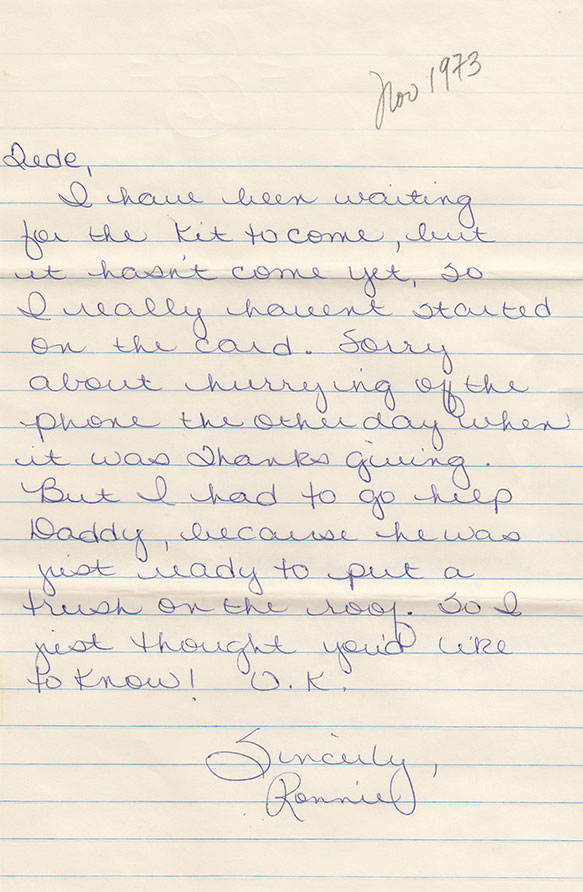 Nov 1973
Dede,
I have been waiting
for the Kit to come, but
it hasn't come yet, so
I really havent started
on the card. Sorry
about hurrying off the
phone the other day when
it was Thanks Giving.
But I had to go help
Daddy, because he was
just ready to put a
trush on the roof. So I
just thought you'd like
to know! O.K.
Sincerly,
Ronnie